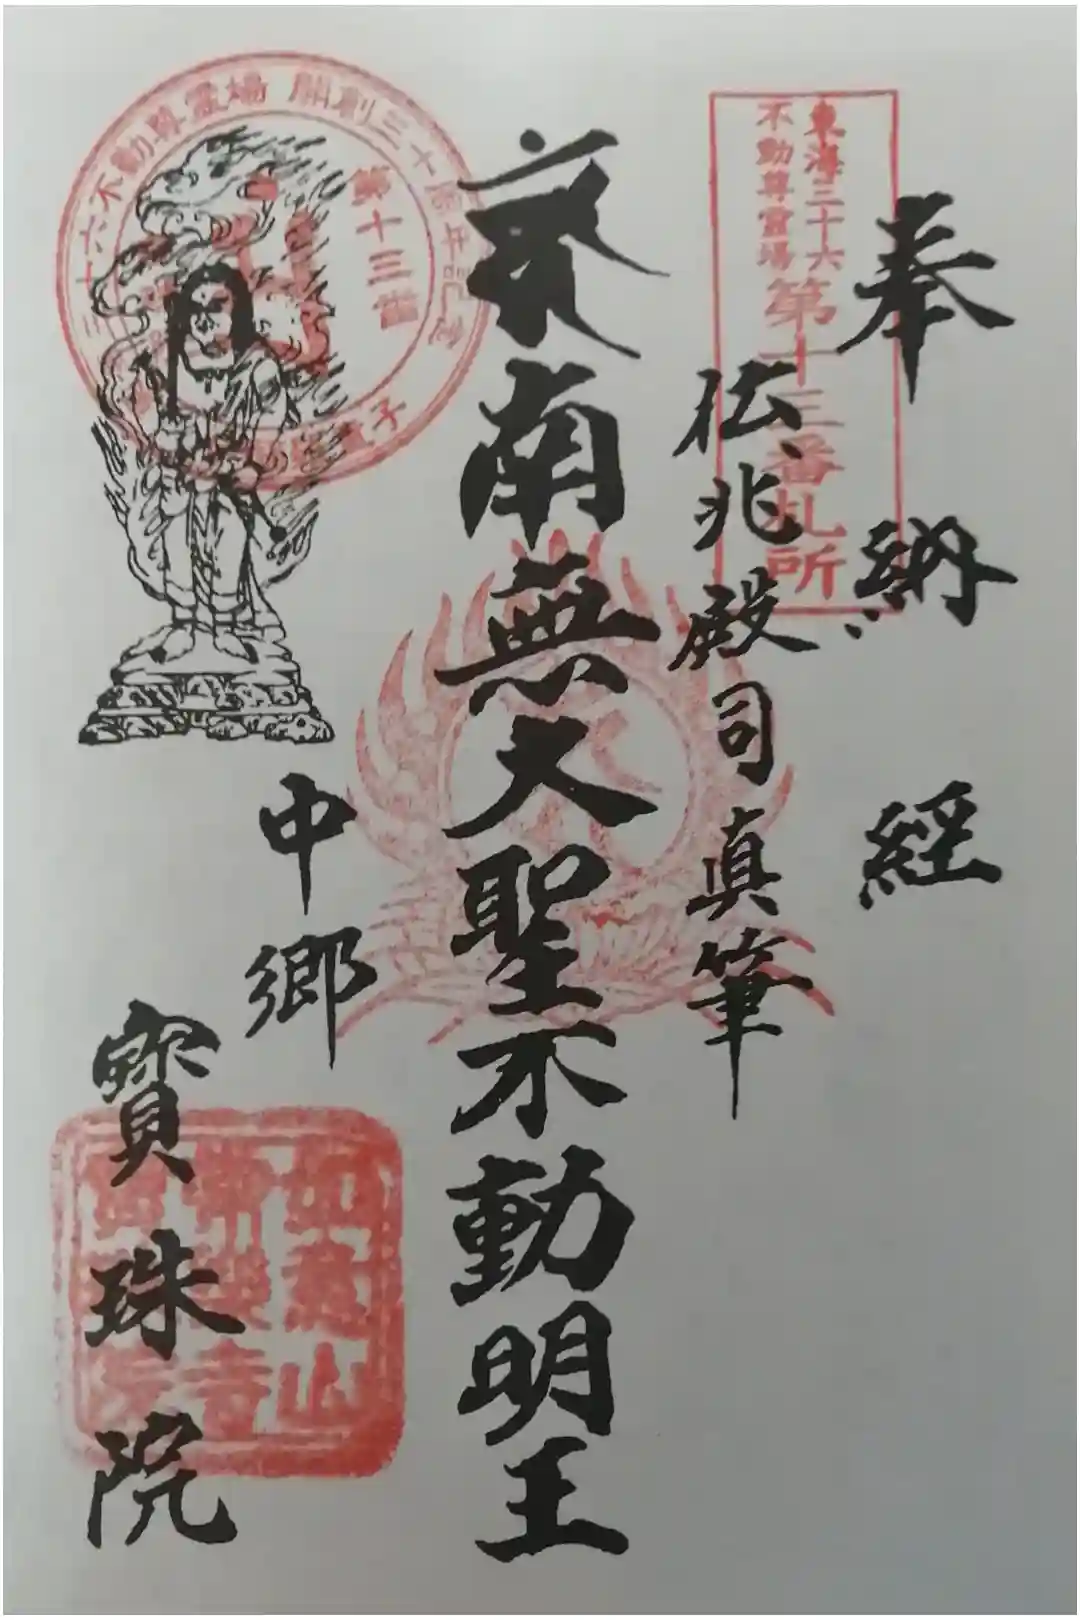 奉納経
東海三十六
不動尊霊場
第十三番札所
伝兆殿司真筆
南無大聖不動明王
中郷
寳珠院
六不動尊霊場 開創三十周年記念
第十三番